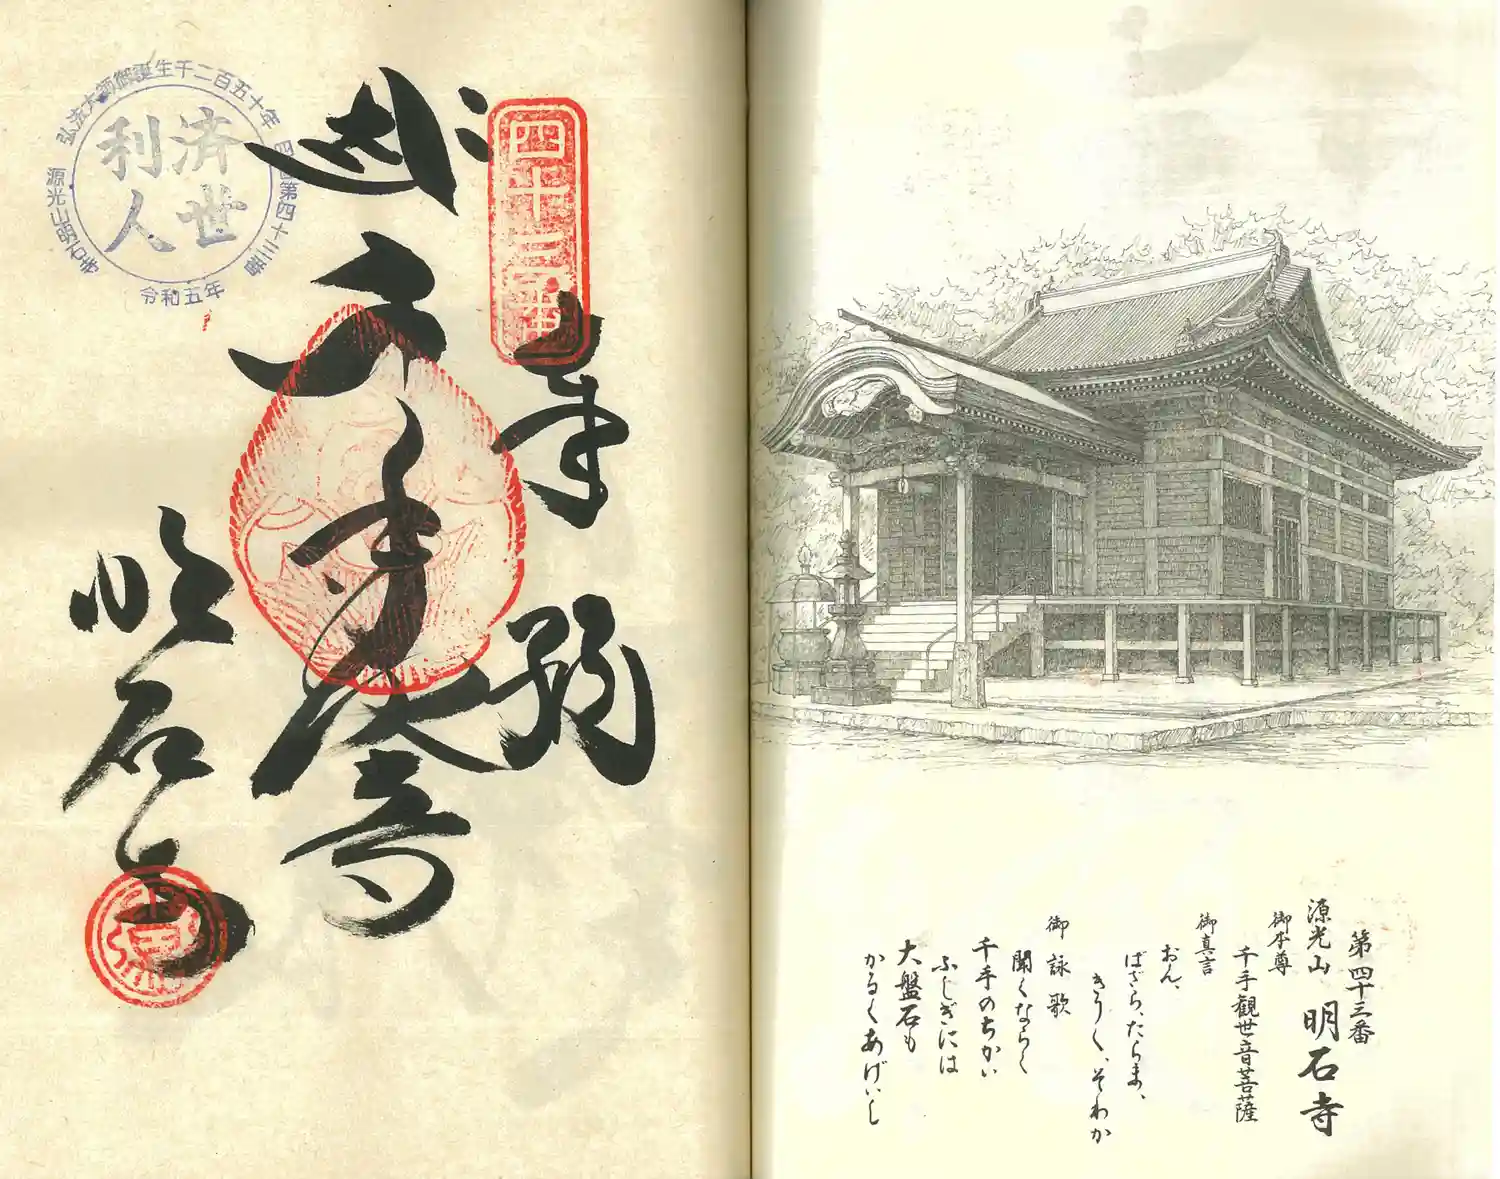 第四十三番
源光山 明石寺
御本尊
千手観世音菩薩
御真言
おん、
ばざら、たらま、
きりく、そわか
御詠歌
聞くならく
千手のちかい
ふしぎには
大盤石も
かるくあげいし
四十三番
奉納
千手
明石寺
弘法大師御誕生千二百五十年
四国第四十三番
源光山明石寺
令和五年
済世
利人